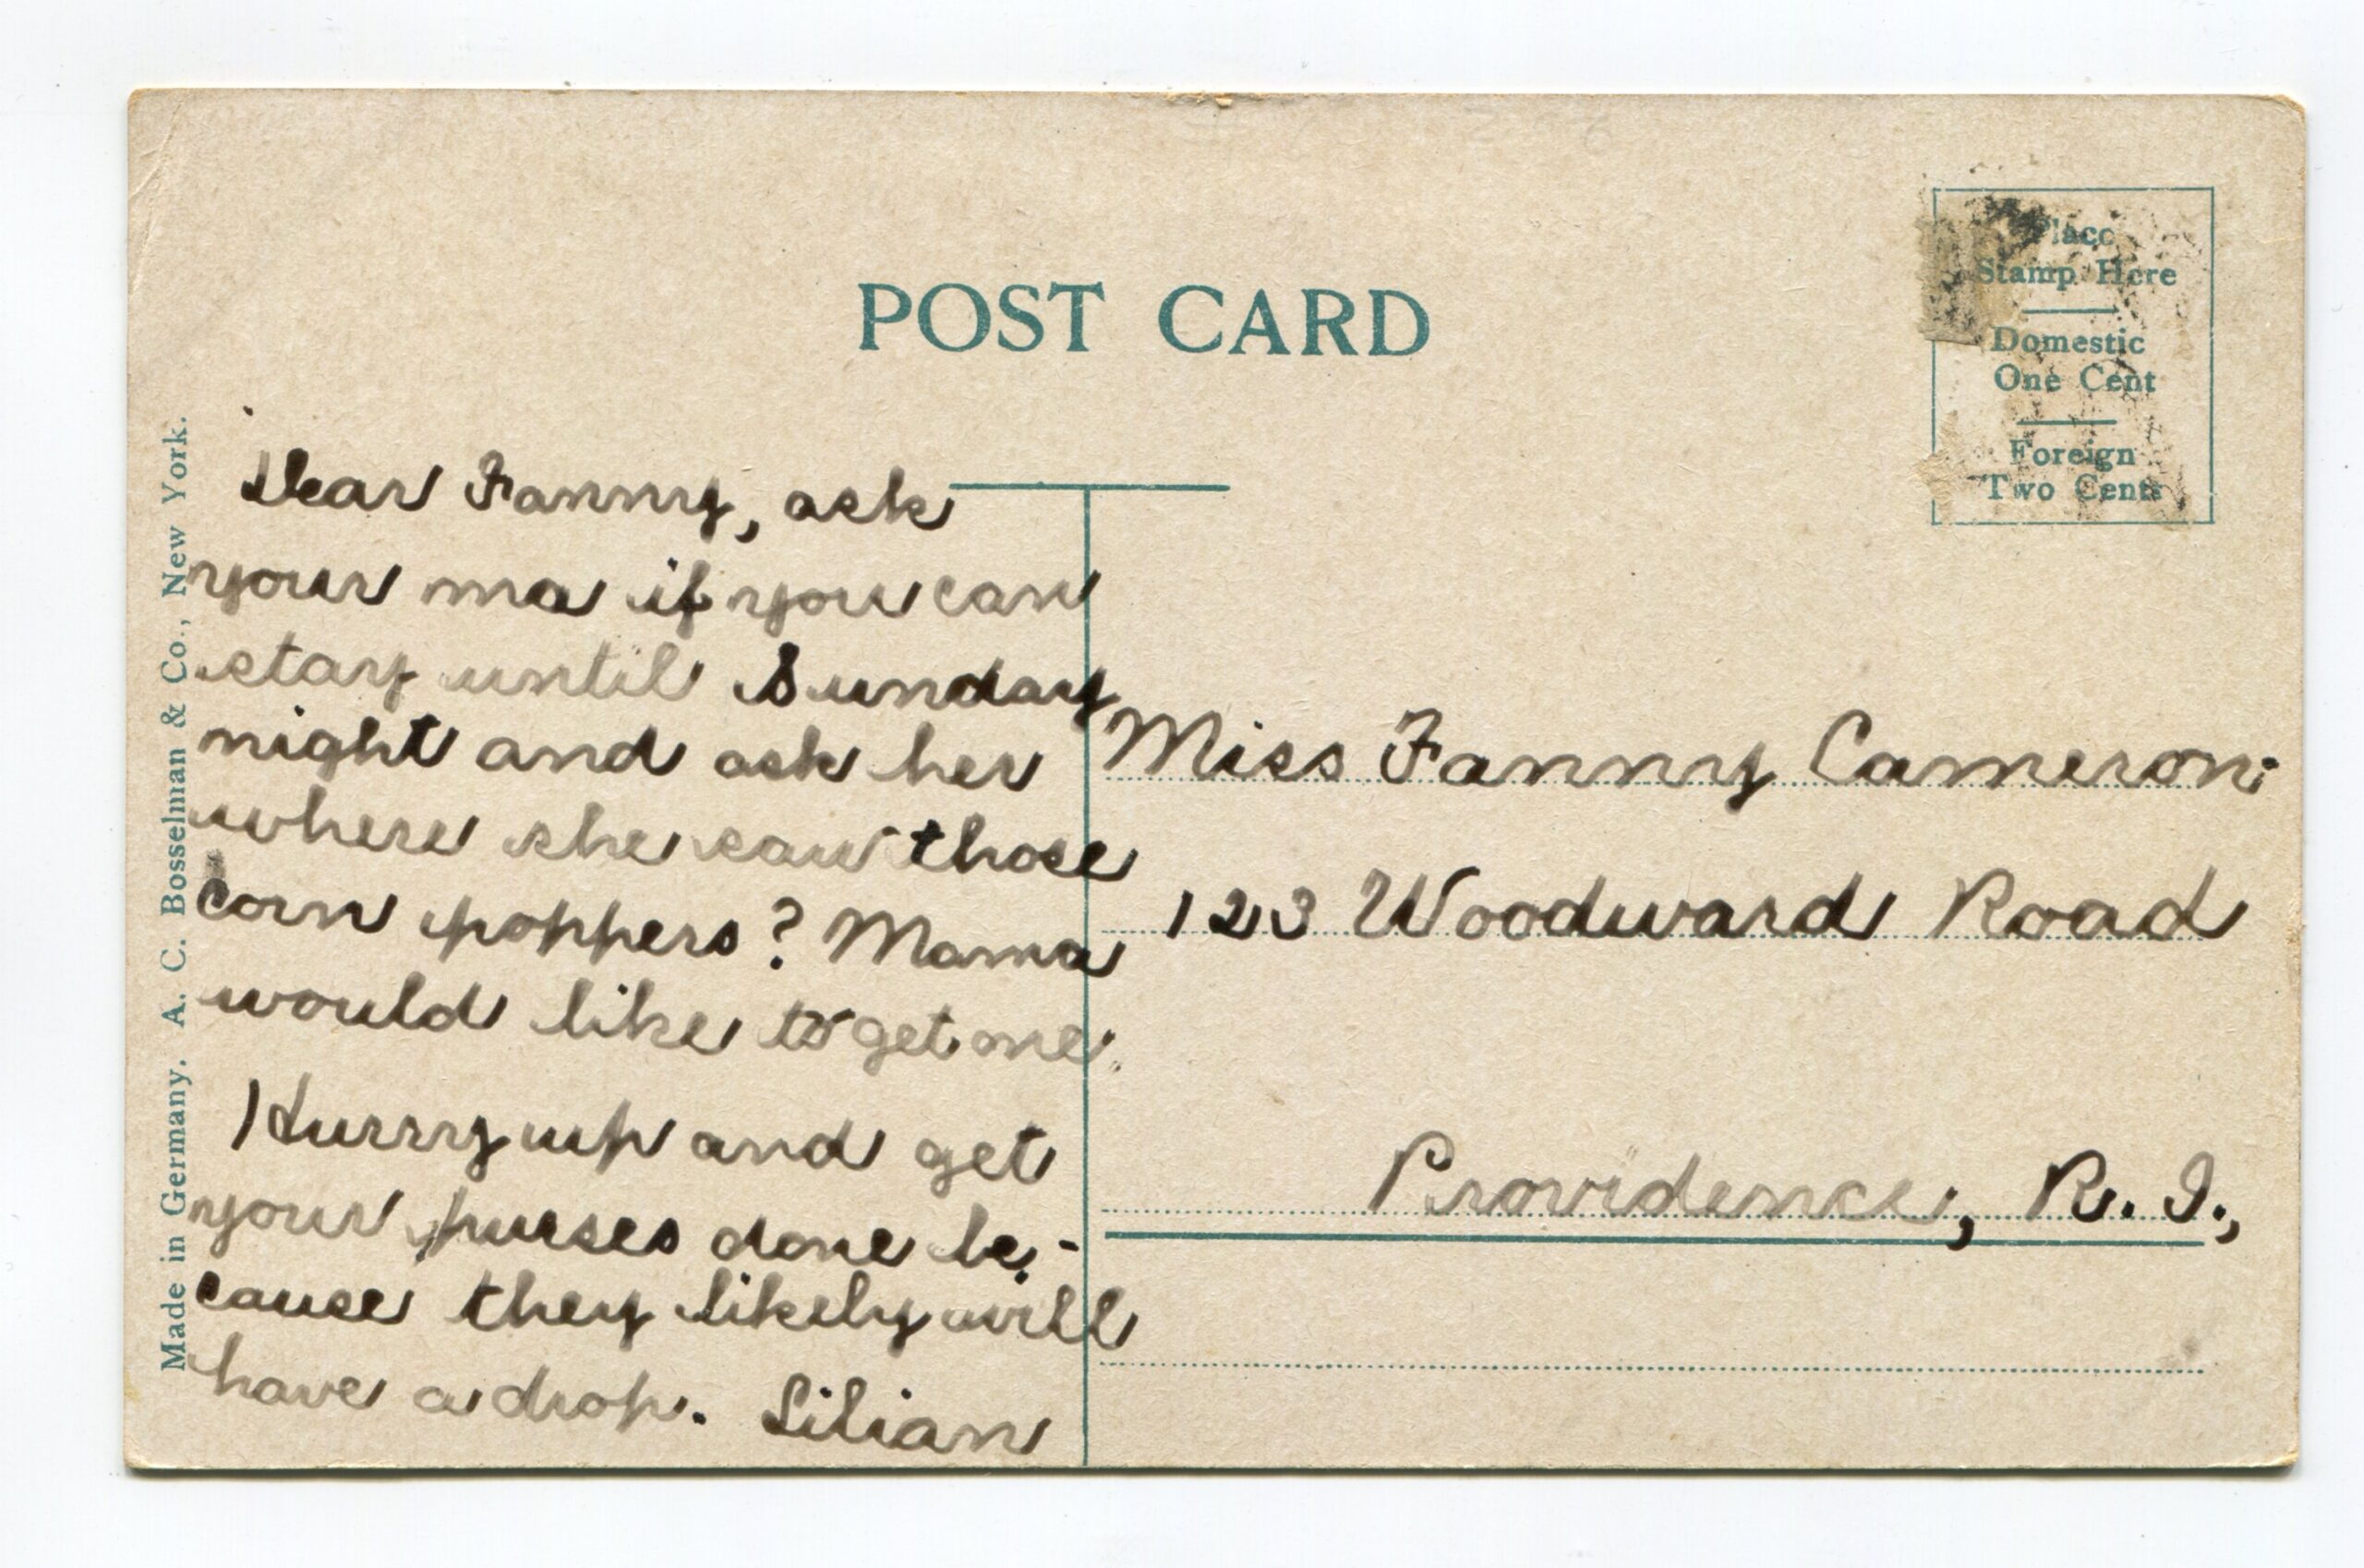 POST CARD
Place
Stamp Here
Domestic
One Cent
Foreign
Two Cents
Made in Germany. A. C. Bosselman & Co., New York.
Dear Fanny, ask
your ma if you can
stay until Sunday
night and ask her
where she saw those
corn poppers? Mama
would like to get one.
Hurry up and get
your purses done be-
cause they likely will
have a drop. Lilian
Miss Fanny Cameron.
123 Woodward Road
Providence, R. I.,